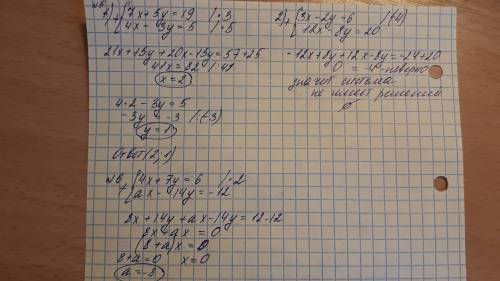 №5
1) + {7x + 5y = 19 | · 3
4x - 3y = 5 | · 5
21x + 15y + 20x - 15y = 57 + 25
41x = 82 | : 41
x = 2
4·2 - 3y = 5
-3y = -3 | : (-3)
y = 1
Ответ (2; 1)
2) + {3x - 2y = 6 | · (-4)
12x - 8y = 20
-12x + 8y + 12x - 8y = -24 + 20
0 = -4 - неверно
значит система
не имеет решений
∅
№6
+ {4x + 7y = 6 | · 2
ax - 14y = -12
8x + 14y + ax - 14y = 12 - 12
8x + ax = 0
(8 + a)x = 0
8 + a = 0 x = 0
a = -8